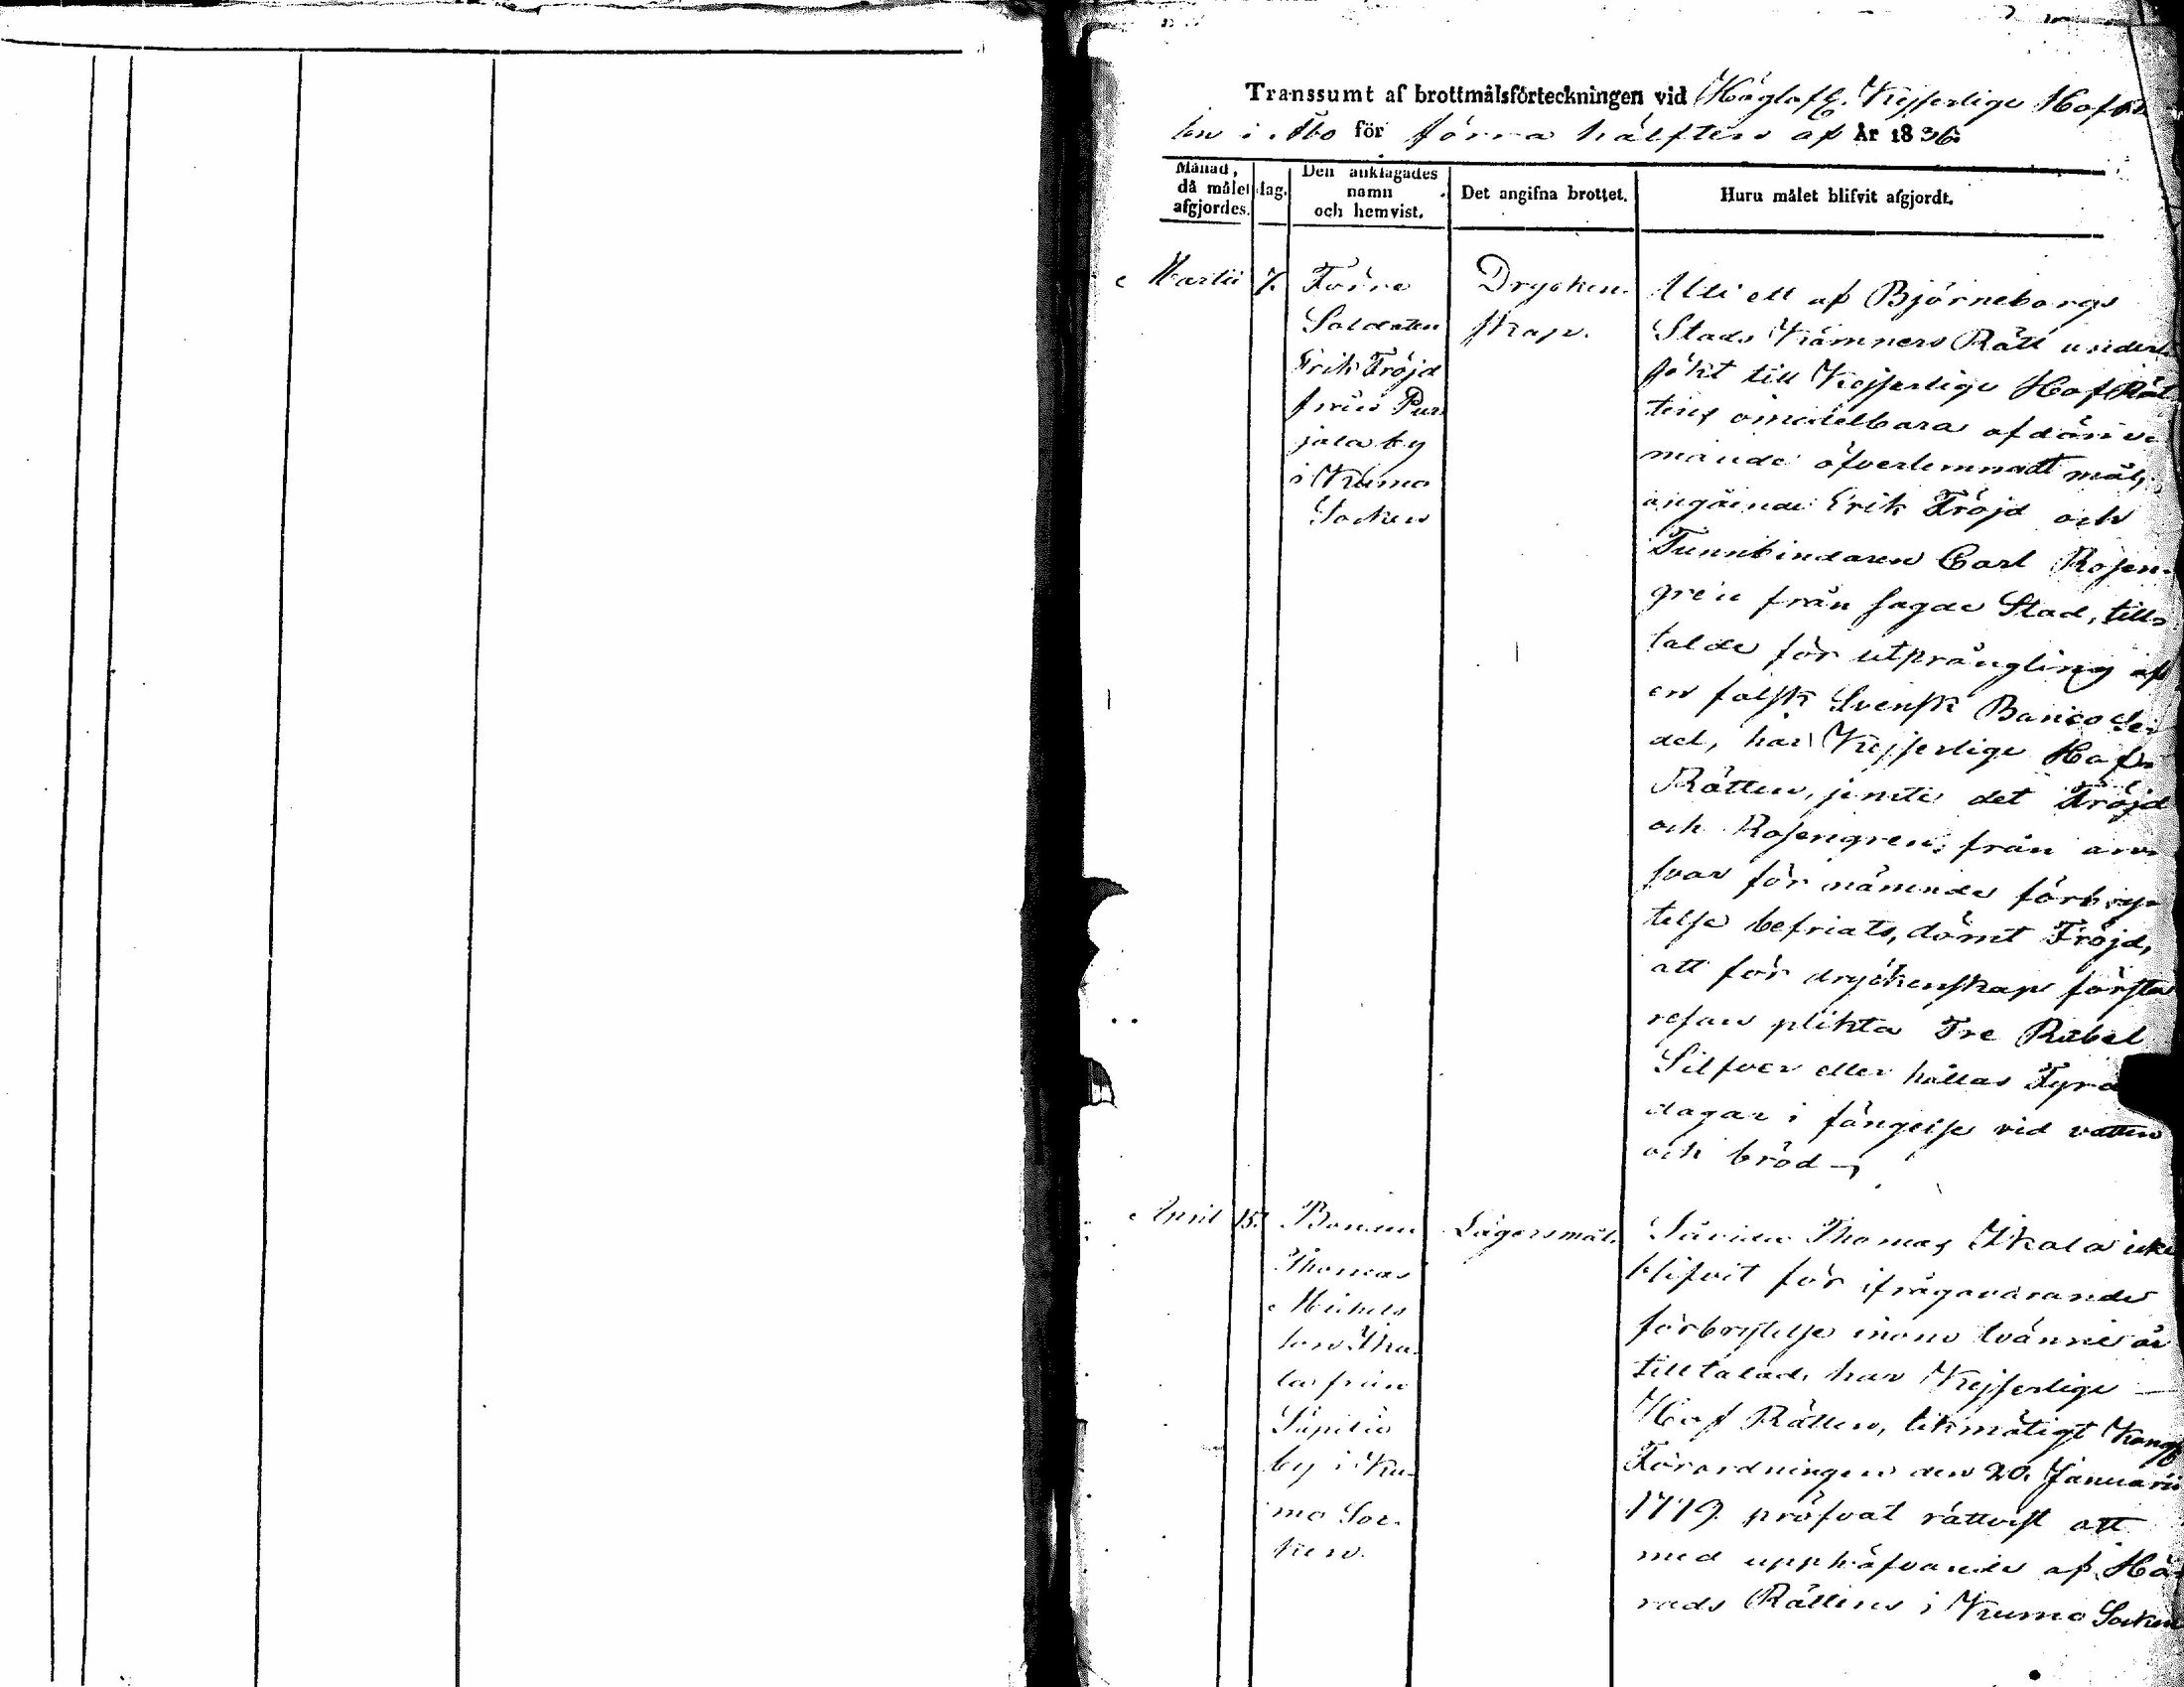 Transsumt af brottmålsförteckningen vid Höglofl. Kejserlige HofRät
ten i Åbo för förra hälften af År 1836.
Månad, då målet afgjordes.
dag.
Den anklagades namn och hemvist.
Det angifna brottet.
Huru målet blifvit afgjordt.
Martii
7.
Förre
Soldaten
Erik Fröjd
från Pur
jala by
i Kumo
Socken
Drycken-
skap.
Uti ett af Björneborgs
Stads Kämners Rätt under
sökt till Kejserlige HofRät
tens omedelbara afdöm
mande öfverlemnadt mål,
angående Erik Fröjd och
Tunnbindaren Carl Rosen-
gren från sagde Stad, till-
talde för utprångling af
en falsk Svensk Banco Se
del, har Kejserlige Hof-
Rätten, jemte det Fröjd
och Rosengren från an-
svar för nämnde förbry-
telse befriats, dömt Fröjd,
att för dryckenskap första
resan plikta Tre Rubel
Silfver eller hållas Fyra
dagar i fängelse vid vatten
och bröd
April
15.
Bonden
Thomas
Michels
son Ika-
la från
Säpilä
by i Ku-
mo Soc-
ken.
Lägersmål.
Såvida Thomas Ikala icke
blifvit för ifrågavarande
förbrytelse inom tvänne år
tilltalad, har Kejserlige
Hof Rätten, likmätigt Kongl
Förordningen den 20. Januarii
1779. pröfvat rättvist att
med upphäfvande af Hä
rads Rättens i Kumo Socken